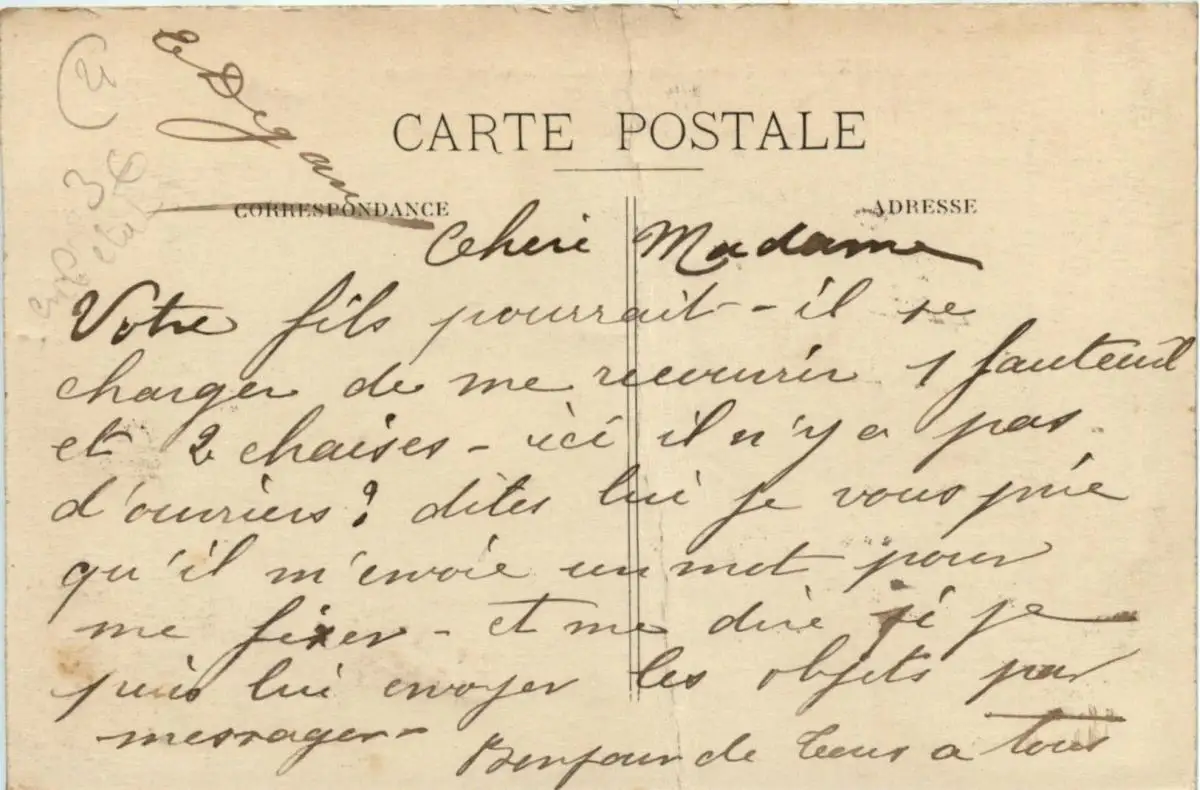 CARTE POSTALE
CORRESPONDANCE
ADRESSE
Cheri Madame
Votre fils pourrait-il se
charger de me recouvrir 1 fauteuil
et 2 chaises - ici il n'y a pas
d'ouvriers? dites lui je vous prie
qu'il m'envoie un mot pour
me fixer - et me dire si je
puis lui envoyer les objets par
messager -
Bonjour de tous a tous